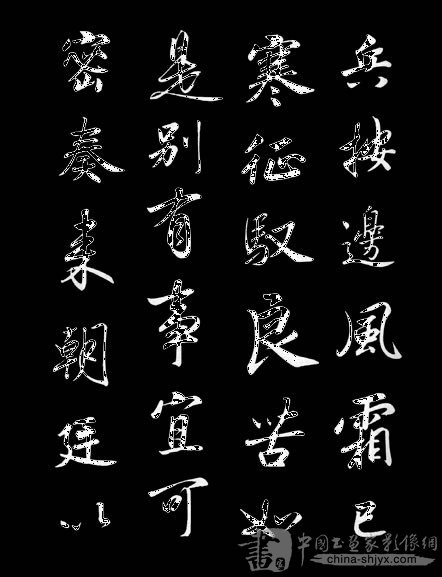 兵按邊風霜已
寒征馭良苦如
是別有事宜可
密奏來朝廷以
中國书画家影像網
china-shjyx.com